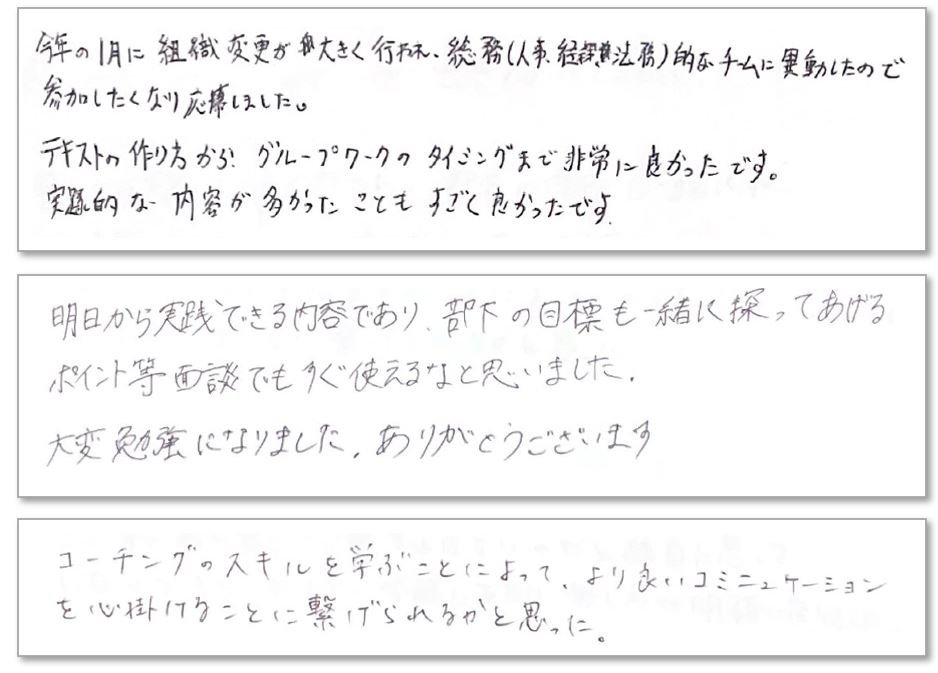 今年の1月に組織変更が大きく行われ、総務(人事、経理、法務)的なチームに異動したので
参加したくなり応募しました。
テキストの作り方から、グループワークのタイミングまで非常に良かったです。
実践的な内容が多かったこともすごく良かったです
明日から実践できる内容であり、部下の目標も一緒に探ってあげる
ポイント等面談でもすぐ使えるなと思いました。
大変勉強になりました。ありがとうございます
コーチングのスキルを学ぶことによって、より良いコミニュケーション
を心掛けることに繋げられるかと思った。